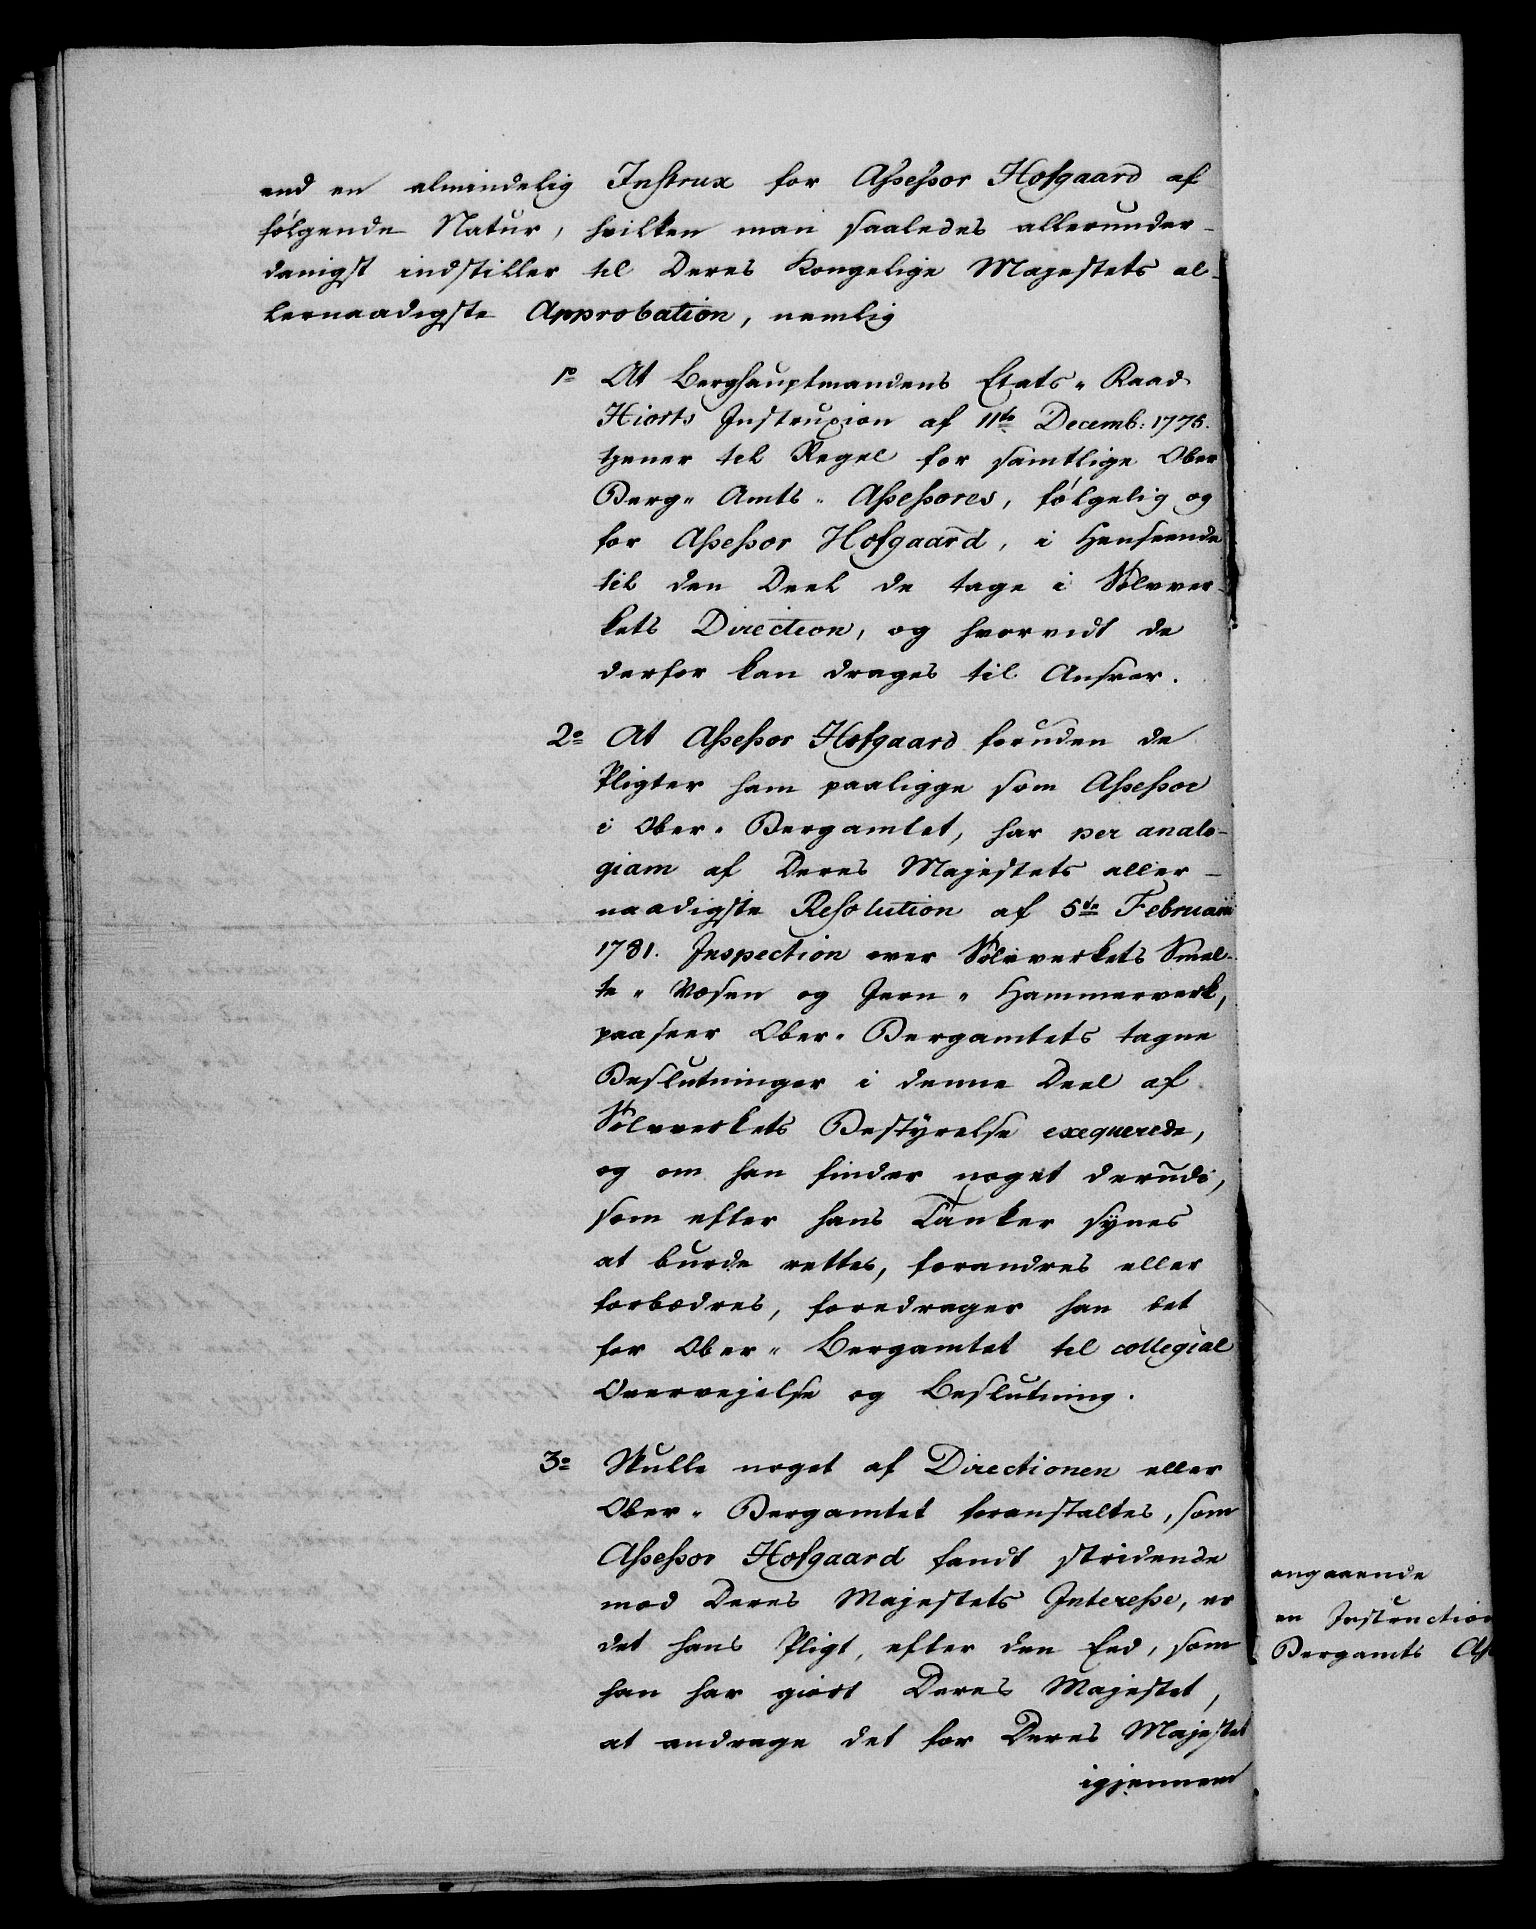 end en almindelig Instrux for Assessor Hofgaard af
følgende Natur, hvilken man saaledes allerunder-
danigst indstiller til Deres Kongelige Majestets al-
lernaadigste Approbation, nemlig
1º At Berghauptmandens Etats-Raad
Hiorts Instruxion af 11te Decemb: 1775.
tjener til Regel for samtlige Ober
Berg-Amts-Assessores, følgelig og
for Assessor Hofgaard, i Henseende
til den Deel de tage i Sølvver-
kets Direction, og hvorvidt de
derfor kan drages til Ansvar.
2º At Assessor Hofgaard foruden de
Pligter ham paaligge som Assessor
i Ober-Bergamtet, har per analo-
giam af Deres Majestets aller-
naadigste Resolution af 5te Februarii
1781. Inspection over Sølvverkets Smel-
te-Væsen og Jern-Hammerverk,
paaseer Ober-Bergamtets tagne
Beslutninger i denne Deel af
Sølvverkets Bestyrelse exequerede,
og om han finder noget derudi,
som efter hans Tanker synes
at burde rettes, forandres eller
forbædres, foredrager han det
for Ober-Bergamtet til collegial
Overvejelse og Beslutning.
3º Skulle noget af Directionen eller
Ober-Bergamtet foranstaltes, som
Assessor Hofgaard fandt stridende
mod Deres Majestets Interesse, er
det hans Pligt, efter den Eed, som
han har giort Deres Majestet,
at andrage det for Deres Majestet
igjennem
angaaende
en Instruction
Bergamts Ass